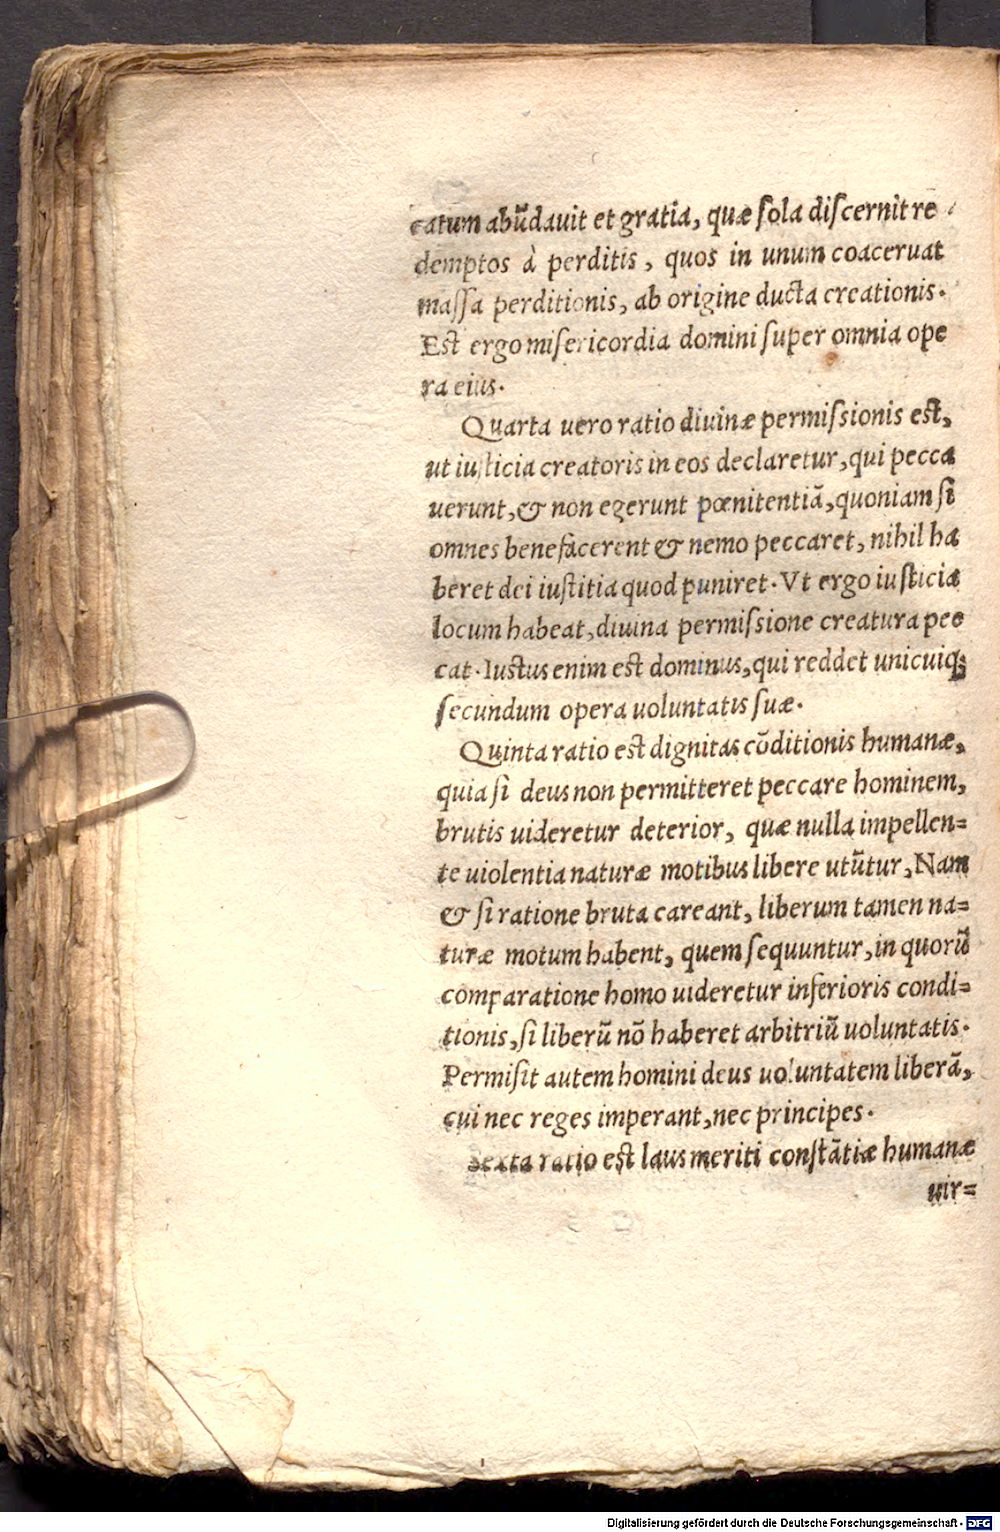 catum abũdauit et gratia, quæ ſola diſcernit re
demptos à perditis, quos in unum coaceruat
maſſa perditionis, ab origine ducta creationis.
Eſt ergo miſericordia domini ſuper omnia ope
ra eius.
Quarta uero ratio diuinæ permiſsionis eſt,
ut iuſticia creatoris in eos declaretur, qui pecca
uerunt, & non egerunt pœnitentiã, quoniam ſi
omnes benefacerent & nemo peccaret, nihil ha
beret dei iuſtitia quod puniret. Vt ergo iuſticia
locum habeat, diuina permiſsione creatura pec
cat. Iuſtus enim eſt dominus, qui reddet unicuiq;
ſecundum opera uoluntatis ſuæ.
Quinta ratio eſt dignitas cõditionis humanæ,
quia ſi deus non permitteret peccare hominem,
brutis uideretur deterior, quæ nulla impellen=
te uiolentia naturæ motibus libere utũtur, Nam
& ſi ratione bruta careant, liberum tamen na=
turæ motum habent, quem ſequuntur, in quorũ
comparatione homo uideretur inferioris condi=
tionis, ſi liberũ nõ haberet arbitriũ uoluntatis.
Permiſit autem homini deus uoluntatem liberã,
cui nec reges imperant, nec principes.
Sexta ratio eſt laus meriti conſtãtiæ humanæ
uir=
Digitalisierung gefördert durch die Deutsche Forschungsgemeinschaft - DFG